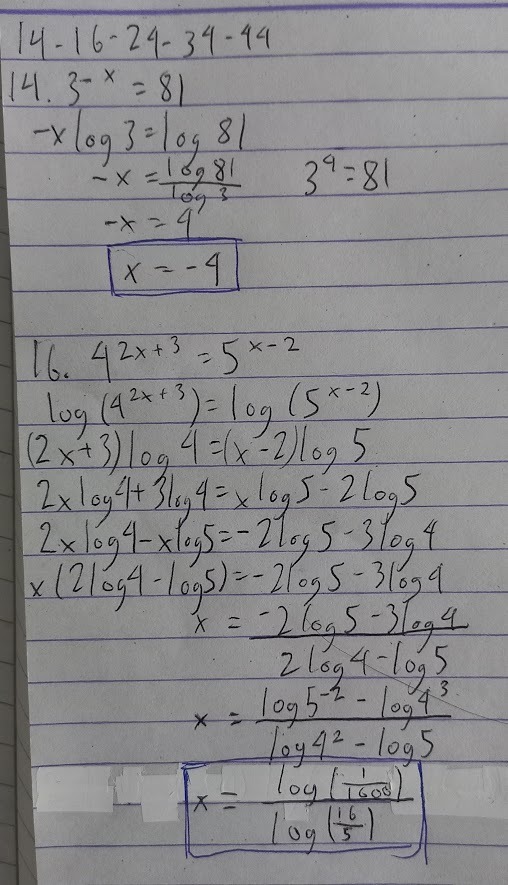 14-16-24-34-44
14. 3^-x = 81
-x log 3 = log 81
-x = log 81 / log 3    3^4 = 81
-x = 4
x = -4
16. 4^2x+3 = 5^x-2
log (4^2x+3) = log (5^x-2)
(2x+3) log 4 = (x-2) log 5
2x log 4 + 3 log 4 = x log 5 - 2 log 5
2x log 4 - x log 5 = -2 log 5 - 3 log 4
x (2 log 4 - log 5) = -2 log 5 - 3 log 4
x = -2 log 5 - 3 log 4 / 2 log 4 - log 5
x = log 5^-2 - log 4^3 / log 4^2 - log 5
x = log (1/1600) / log (16/5)